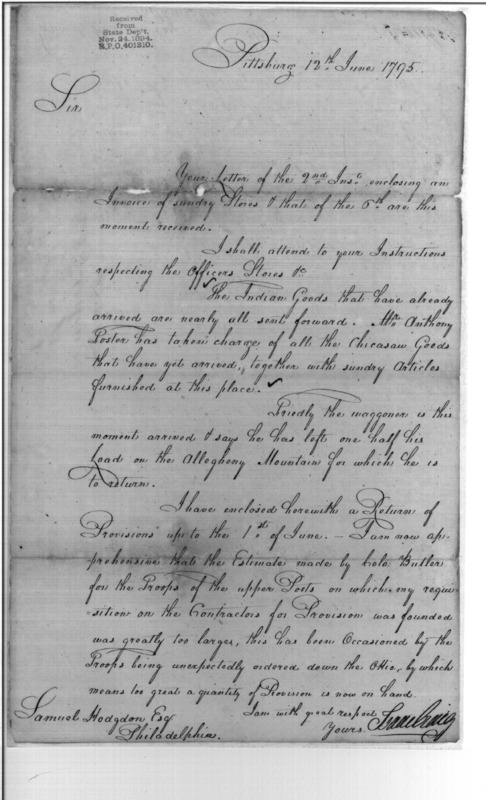 Received
from
State Dep't.
Nov. 24. 1894.
R.P.O. 401210.
Pittsburg 12th June 1795.
Sir
Your Letter of the 2nd Inst. enclosing an
Invoice of sundry Stores & that of the 6th are this
moment received.
I shall attend to your Instructions
respecting the Officers Stores &c
The Indian Goods that have already
arrived are nearly all sent forward. Mr. Anthony
Foster has taken charge of all the Chicasaw Goods
that have yet arrived, together with sundry Articles
furnished at this place.
Priedly the waggoner is this
moment arrived & says he has left one half his
Load on the Allegheny Mountain for which he is
to return.
I have enclosed herewith a Return of
Provisions up to the 1st of June. — I am now ap-
prehensive that the Estimate made by Colo. Butler
for the Troops of the upper Posts on which my requi-
sition on the Contractors for Provision was founded
was greatly too large, this has been Occasioned by the
Troops being unexpectedly ordered down the Ohio, by which
means too great a quantity of Provision is now on hand.
I am with great respect
Samuel Hodgdon Esq
Yours. Isaac Craig
Philadelphia.